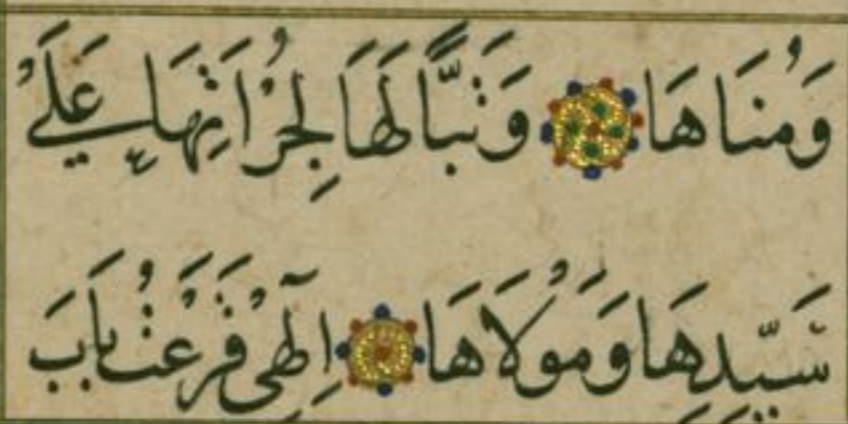 وَمُنَاهَا وَتَبًّا لَهَا لِجُرْاَتِهَا عَلَىٰ
سَيِّدِهَا وَمَوْلَاهَا اِلٰهِى قَرَعْتُ بَابَ